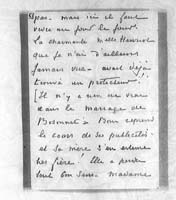 pas. mais ici il faut
vivre au jour le jour.
la charmante Melle Henriot
que je n'ai d'ailleurs
jamais vue - avait déjà
trouvé un protecteur !
Il n'y a rien de vrai
dans le mariage de
Bonnet. Bour reprend
le cours de ses publicités
et sa mère s'en
très fière ! Elle a
tout son Madame